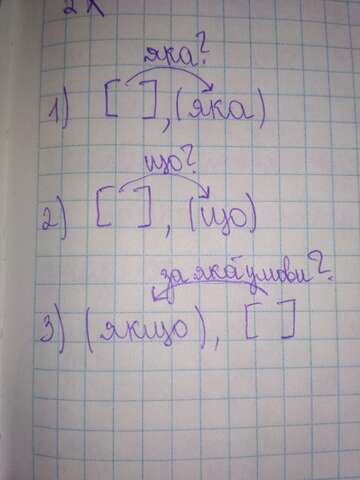 2х
яка?
1) [ ], (яка)
що?
2) [ ], (що)
за яка умови?
3) (якщо), [ ]